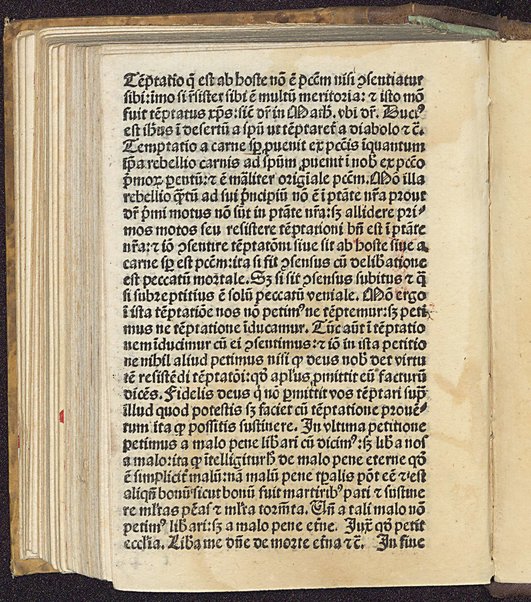 Tẽptatio q̃ est ab hoste nõ ẽ pctm̃ nisi ꝯsentiatur
sibi: imo si r̃sistet̃ sibi ẽ multũ meritoria: ⁊ isto mõ
fuit tẽptatus xp̃s: sicũ dr̃ in Math. vbi dr̃. Ductꝰ
est ih̃us ĩ desertũ a spũ ut tẽptaret̃ a diabolo ⁊ c̃.
Temptatio a carne sp̱ ꝓuenit ex pctĩs ĩquantum
ip̃a rebellio carnis ad spũm ꝓuenit ĩ nob̃ ex pctõ
p̃moꝝ parentũ: ⁊ ẽ mãliter origĩale pctm̃. Mõ illa
rebellio q̃tũ ad sui p̃ncipiũ nõ ẽ ĩ ptãte nr̃a prout
dr̃ p̃mi motus nõ sũt in ptãte nr̃a: sꝫ allidere pri⸗
mos motos seu resistere tẽptationi bñ est ĩ ptãte
nr̃a: ⁊ iõ ꝯsentire tẽptatõni siue sit ab hoste siue a
carne sp̱ est pctm̃: ita si sit ꝯsensus cũ delibatione
est peccatũ mortale. Sꝫ si sit ꝯsensus subitus ⁊ q̃
si subreptitius ẽ solũ peccatũ veniale. Mõ ergo
ĩ ista tẽptatiõe nos nõ petimꝰ ne tẽptemur: sꝫ peti
mus ne tẽptatione ĩducamur. Tũc aũt ĩ tẽptatio
nem ĩducimur cũ ei ꝯsentimus: ⁊ iõ in ista petitio
ne nihil aliud petimus nisi ꝙ deus nob̃ det virtu
tẽ resistẽdi tẽptatõi: qđ apl̃us ꝓmittit eũ facturũ
dicẽs. Fidelis deus q̃ nõ ꝑmittit vos tẽptari sup̃
illud quod potestis sꝫ faciet cũ tẽptatione proue⸗
tum ita ꝙ possitis sustinere. In vltima petitione
petimus a malo pene lib̃ari cũ dicimꝰ: sꝫ lib̃a nos
a malo: ita ꝙ ĩtelligitur hͦ de malo pene eterne qđ
ẽ simplicit̃ malũ: na malũ pene tp̃alis põt eẽ ⁊ est
aliqñ bonũ sicut bonũ fuit martiribꝰ pati ⁊ sustine
re ml̃tas pẽas ⁊ ml̃ta torm̃ta. Uñ a tali malo nõ
petimꝰ lib̃ari: sꝫ a malo pene et̃ne. Iux̃ qđ petit
eccl̃ia. Lib̃a me dñe de morte et̃na ⁊ c̃. In fine